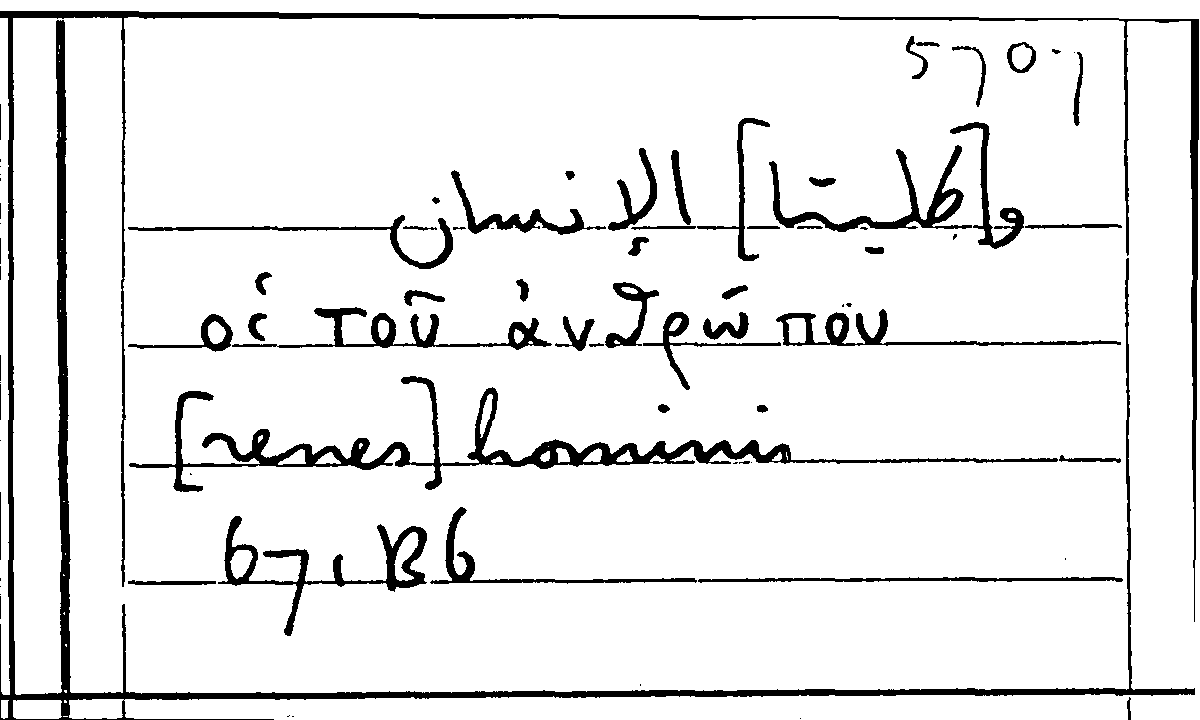 5707
و[كليتا] الإنسان
οἱ τοῦ ἀνθρώπου
[renes] hominis
671B6